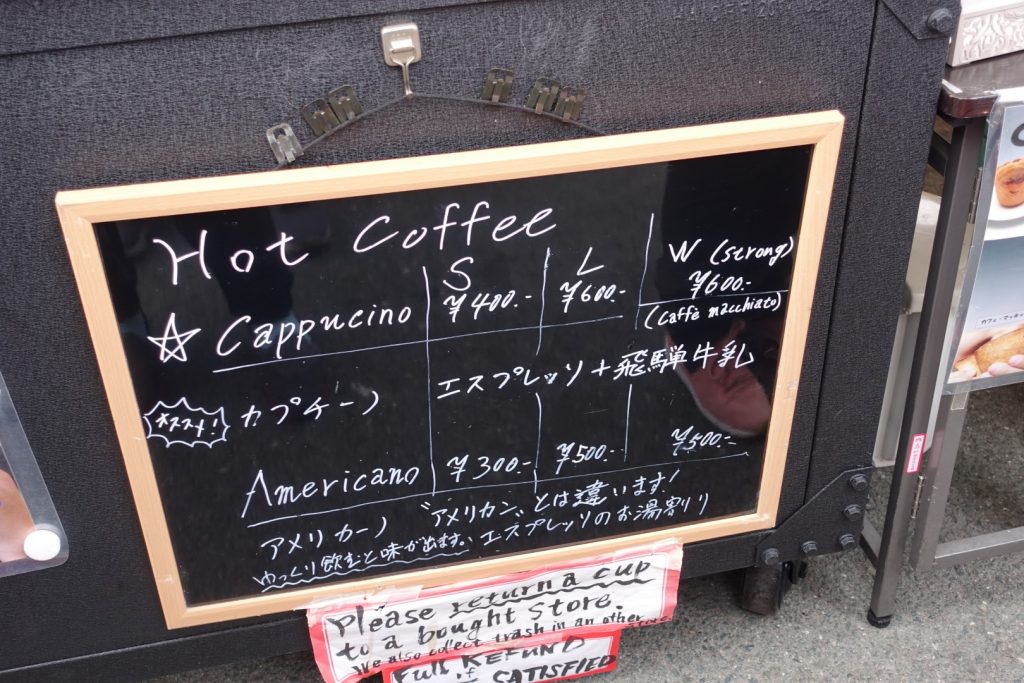 Hot Coffee
S L W (strong)
☆ Cappucino ¥400.- ¥600.- ¥600.-
(caffè macchiato)
オススメ! カプチーノ エスプレッソ+飛騨牛乳
Americano ¥300.- ¥500.- ¥500.-
アメリカーノ "アメリカン"とは違います!
ゆっくり飲むと味が出ます。エスプレッソのお湯割り
Please return a cup
to a bought store.
We also collect trash in an other store
Full REFUND
if SATISFIED